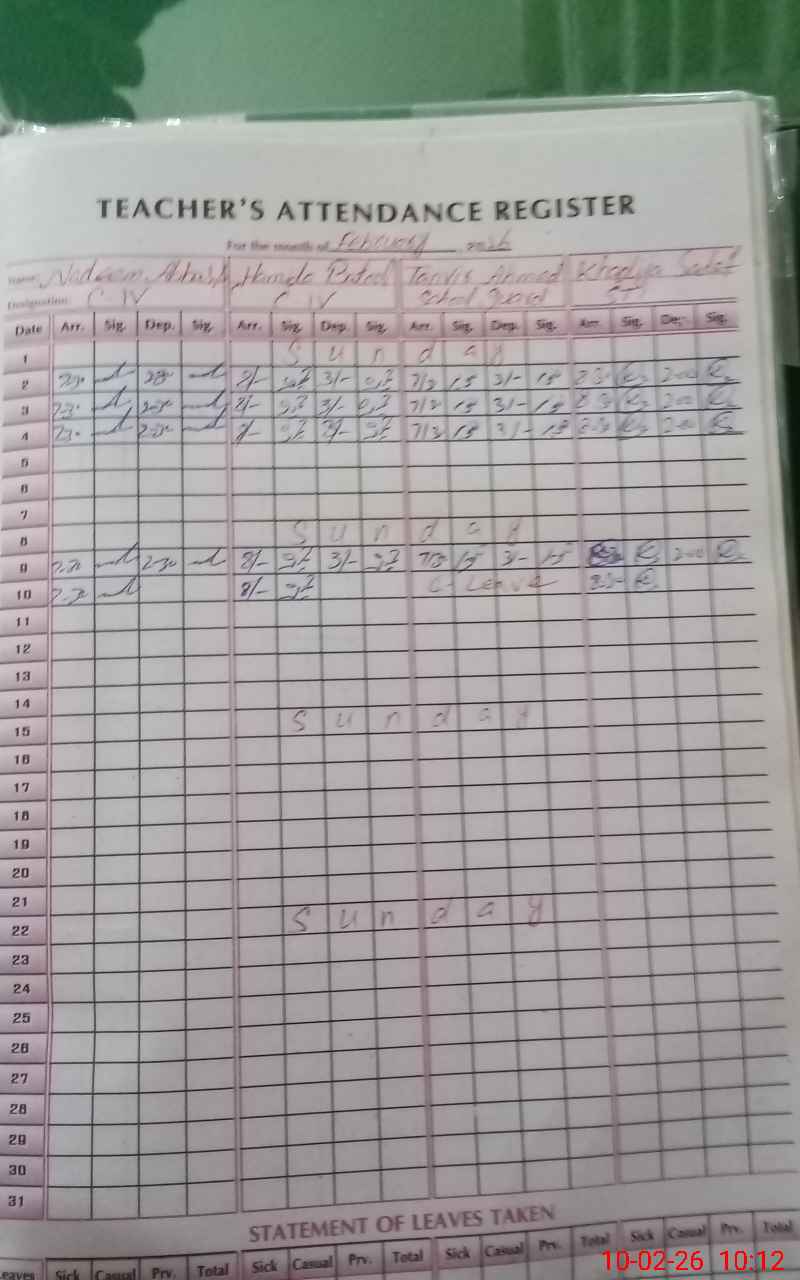 TEACHER'S ATTENDANCE REGISTER
For the month of February 2026
Name: Nadeem Hamda Batool Tanvir Ahmed Khadija
Designation C-IV C-IV School Guard ST
Date Arr. Sig. Dep. Sig. Arr. Sig. Dep. Sig. Arr. Sig. Dep. Sig. Arr. Sig. Dep. Sig.
1 Sunday
2 7:30 2:30 8/- 3/- 7/30 3/- 8:30 2:00
3 7:30 2:30 8/- 3/- 7/30 3/- 8:30 2:00
4 7:30 2:30 8/- 3/- 7/30 3/- 8:30 2:00
5
6
7
8 Sunday
9 7:30 2:30 8/- 3/- 7/30 3/- 2:00
10 7:30 8/- C-Leave 8:30
11
12
13
14
15 Sunday
16
17
18
19
20
21
22 Sunday
23
24
25
26
27
28
29
30
31
STATEMENT OF LEAVES TAKEN
Leaves Sick Casual Prv. Total Sick Casual Prv. Total Sick Casual Prv. Total Sick Casual Prv. Total
10-02-26 10:12